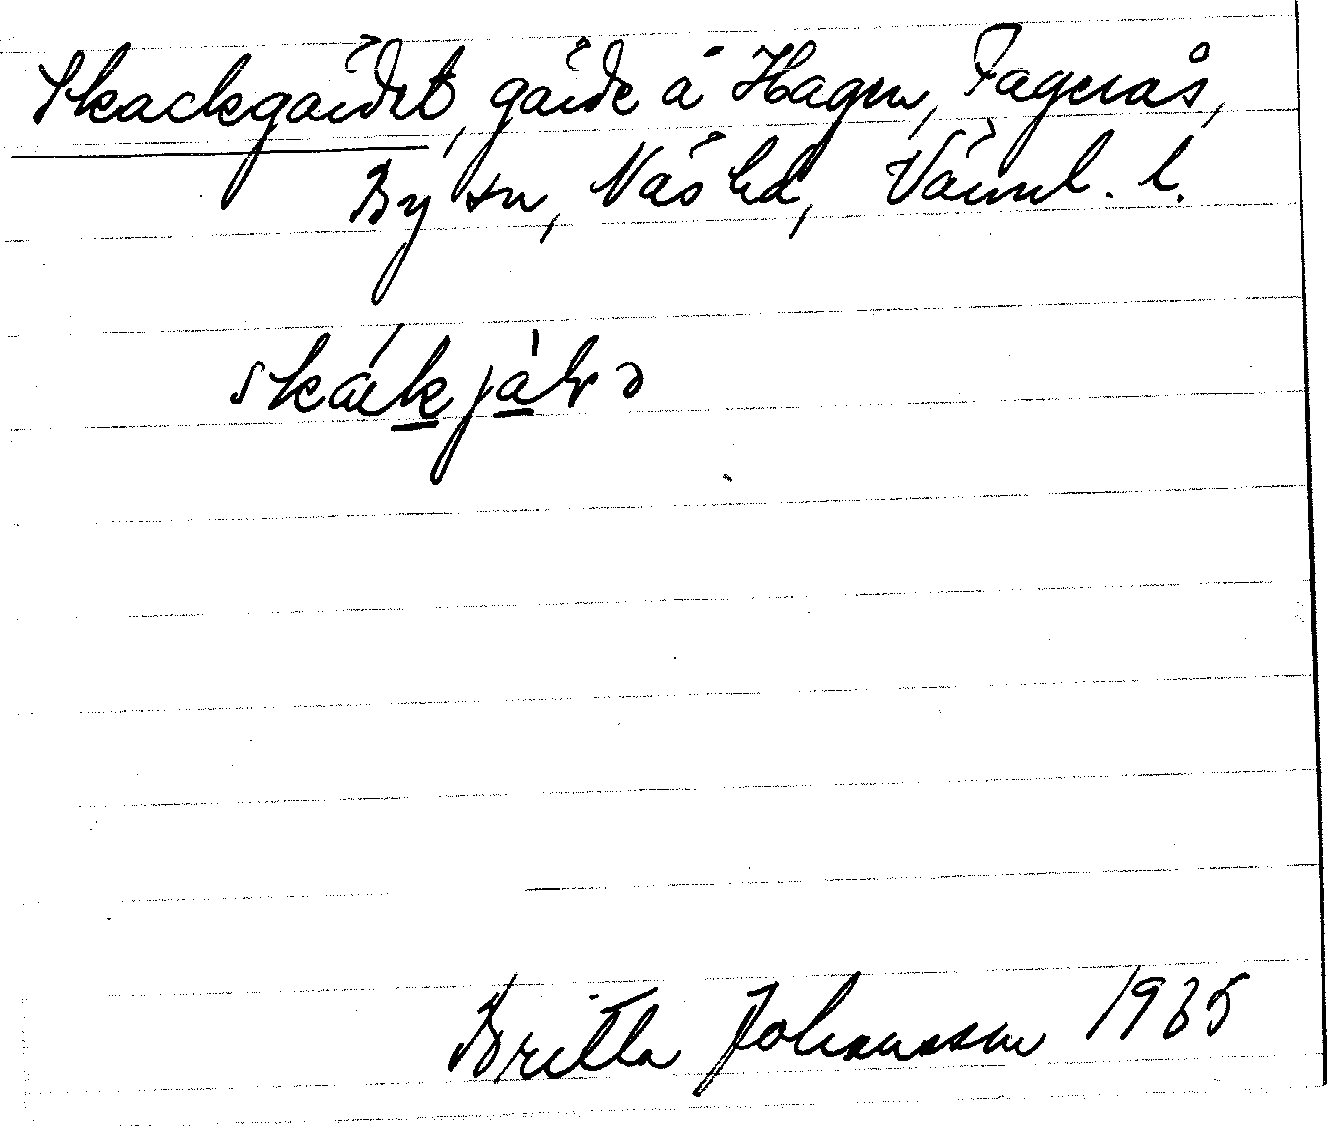 Skackgärdet, gärde å Hagen, Fagerås,
By sn, Näs hd, Värml. l.
Britta Johansson 1935